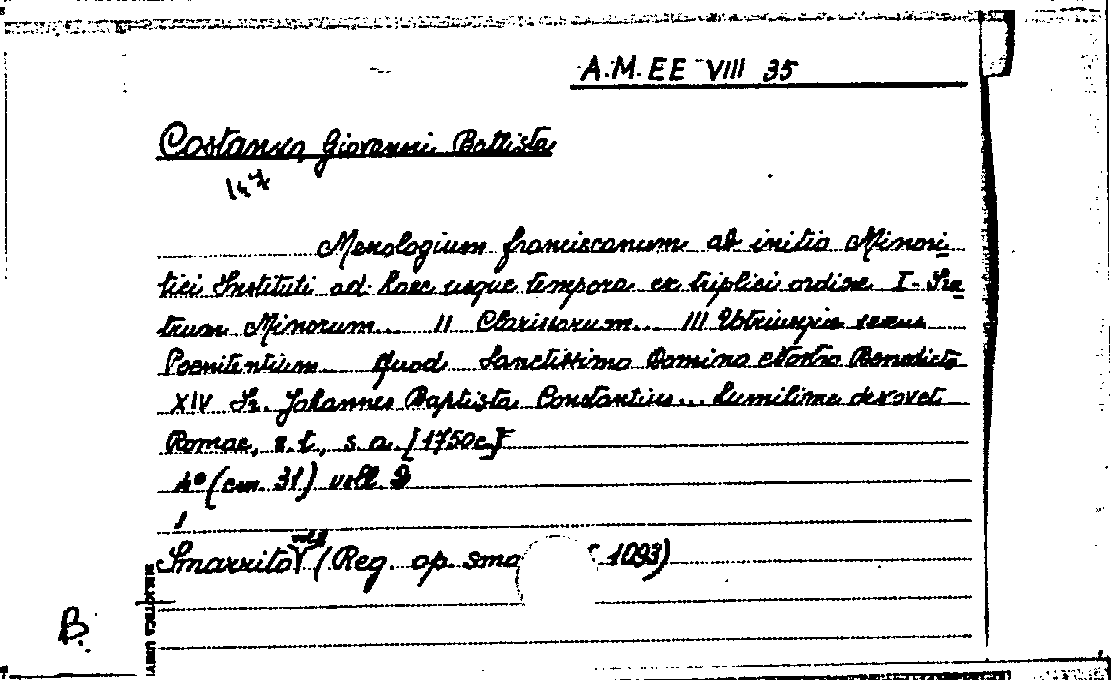 A.M.EE VIII 35
Costanzo, Giovanni Battista
147
Menologium franciscanum ab initio Minori
tici Instituti ad haec usque tempora ex triplici ordine I- Fra
trum Minorum... II Clarissarum... III Utriusque sexus
Poenitentium... Quod Sanctissimo Domino Nostro Benedicto
XIV Fr. Johannes Baptista Constantius... humilime devovet
Romae, s.t., s.a. [1750c.]
4° (cm. 31) voll. 2
Smarrito (Reg. op. sma 1093)
BIBLIOTECA UNIV
B.